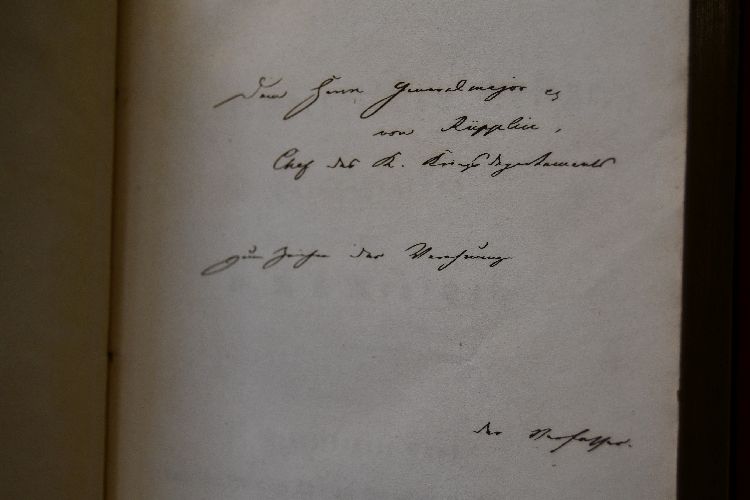 Dem Herrn Generalmajor ꝛc
von Rüpplin,
Chef des K. Kriegsdepartements
zum Zeichen der Verehrung
der Verfasser.